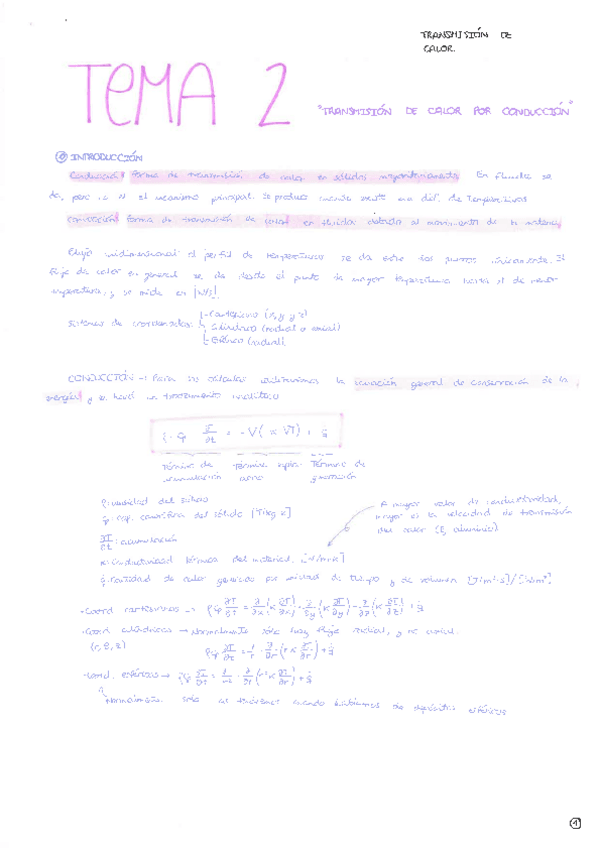 TRANSMISIÓN DE
CALOR.
TEMA 2
"TRANSMISIÓN DE CALOR POR CONDUCCIÓN"
INTRODUCCIÓN
Conducción: forma de transmisión de calor en sólidos mayoritariamente. En fluidos se
da, pero no es el mecanismo principal. Se produce cuando existe una dif. de temperaturas
Convección: forma de transmisión de calor en fluidos debido al movimiento de la materia
Flujo unidimensional: el perfil de temperaturas se da entre dos puntos únicamente. El
flujo de calor en general se da desde el punto de mayor temperatura hasta el de menor
temperatura, y se mide en [W]
- Cartesiano (x, y, z)
Sistemas de coordenadas: - Cilíndrico (radial o axial)
- Esférico (radial)
CONDUCCIÓN → Para los cálculos utilizaremos la ecuación general de conservación de la
energía, y se hará un tratamiento analítico
ρ · cp ∂T/∂t = -∇(κ ∇T) + q̇
Término de acumulación
Término de generación
ρ: densidad del sólido
cp: cap. calorífica del sólido [J/kg K]
A mayor valor de conductividad,
mayor es la velocidad de transmisión
del calor (aluminio)
∂T/∂t: acumulación
κ: conductividad térmica del material [W/m·K]
q̇: cantidad de calor generado por unidad de tiempo y de volumen [J/m³·s] / [W/m³]
- Coord. cartesianas → ρcp ∂T/∂t = ∂/∂x (κ ∂T/∂x) + ∂/∂y (κ ∂T/∂y) + ∂/∂z (κ ∂T/∂z) + q̇
- Coord. cilíndricas → Normalmente sólo hay flujo radial, y no axial.
ρcp ∂T/∂t = 1/r · ∂/∂r · (r κ ∂T/∂r) + q̇
- Coord. esféricas → ρcp ∂T/∂t = 1/r² · ∂/∂r (r² κ ∂T/∂r) + q̇
Normalmente sólo las tendremos cuando hablamos de depósitos esféricos
1